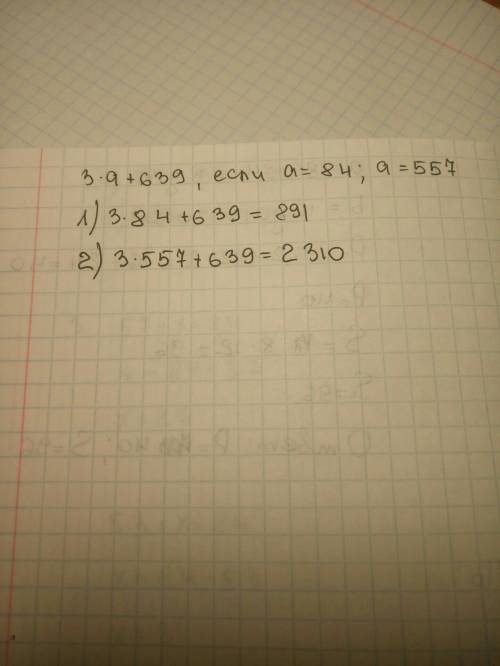 3·a+639, если a=84; a=557
1) 3·84+639=891
2) 3·557+639=2310